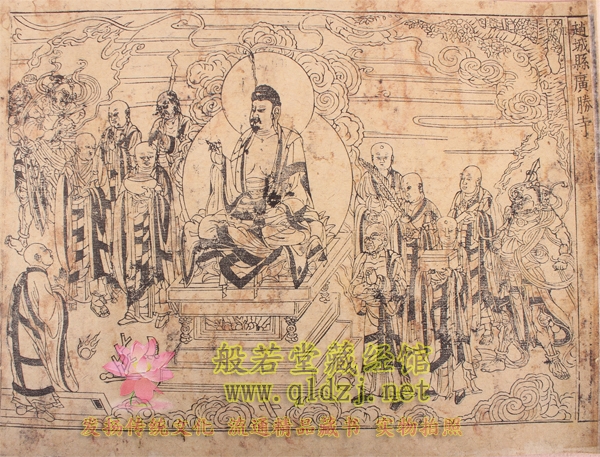 趙城縣廣勝寺
般若堂藏经馆
www.qldzj.net
爱扬传统文化 流通精品藏书 实物拍照